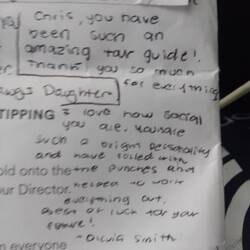 Chris, you have
been such an
amazing tour guide!
Thank you so much
for everything
Daughter
TIPPING I love how social
you are. You have
such a origin personality
and have rolled with
old onto the the punches and
our Director. needed to work
everything out.
Best of luck for your
future!
- Olivia Smith
n everyone